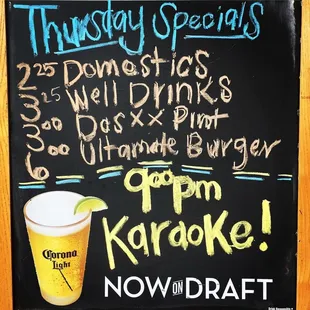 Thursday Specials
2 25 Domestics
3 25 Well Drinks
3 00 Dos XX Pint
6 00 Ultamate Burger
9:00 pm
Karaoke!
Corona
Light
NOW ON DRAFT